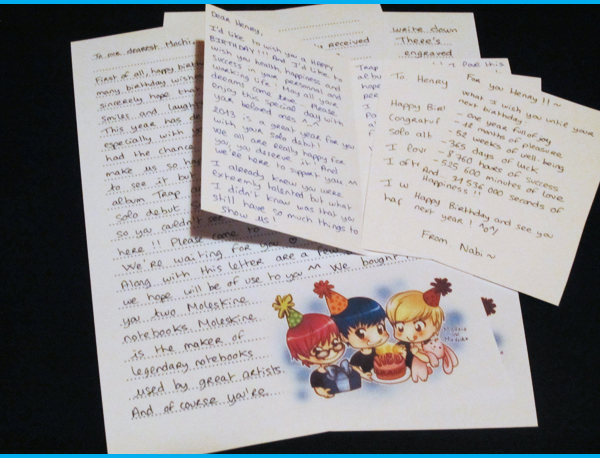 To our dearest Mochi,
First of all, happy birth
many birthday wishes
sincerely hope that
smiles and laught
This year has be
especially with yo
had the chance
make us so hap
to see it but
album Trap an
solo debut.
so you couldn't see
here !! Please come to
We're waiting for you
Along with this letter are a few
we hope will be of use to you ^^ We bought
you two Moleskine
notebooks. Moleskine
is the maker of
legendary notebooks
used by great artists.
And of course you're
received
write down
There's
engraved
Dear Henry,
I'd like to wish you a HAPPY
BIRTHDAY!!! And I'd like to
wish you health, happiness and
success in your personal and
working life! May all your
dreams come true. Please,
enjoy this special day with
your beloved ones ^^
2013 is a great year for you
with your solo debut!
We all are really happy for
you, you deserve it! And
we're here to support you
I already knew you were
extremely talented but what
I didn't know was that you
still have so much things to
show us!
Trap
albu
this
To Henry
Happy Bir
Congratul
solo alb
I love
I ofte
I w
har
For you Henry !! ~
What I wish you until your
next birthday:
- one year full of joy
- 12 months of pleasure
- 52 weeks of well-being
- 365 days of luck
- 8 760 hours of success
- 525 600 minutes of love
- 31 536 000 seconds of
Happiness !!
Happy Birthday and see you
next year !
From Nabi ~